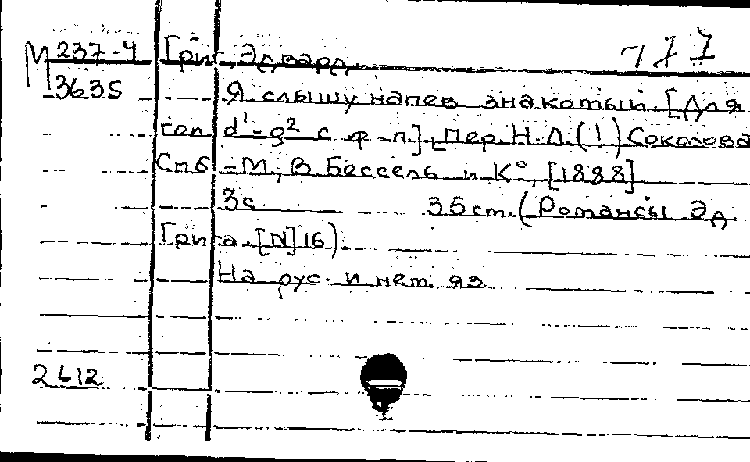 М 237-4 Григ, Эдвард
3635 Я слышу напев знакомый. [Для
гол. d¹-g² с ф-п.]. Пер. Н.Л.(!) Соколова
Спб.-М., В. Бессель и К°, [1888].
3с 35 ст. (Романсы Эд.
Грига. [N] 16).
На рус. и нем. яз.
2612